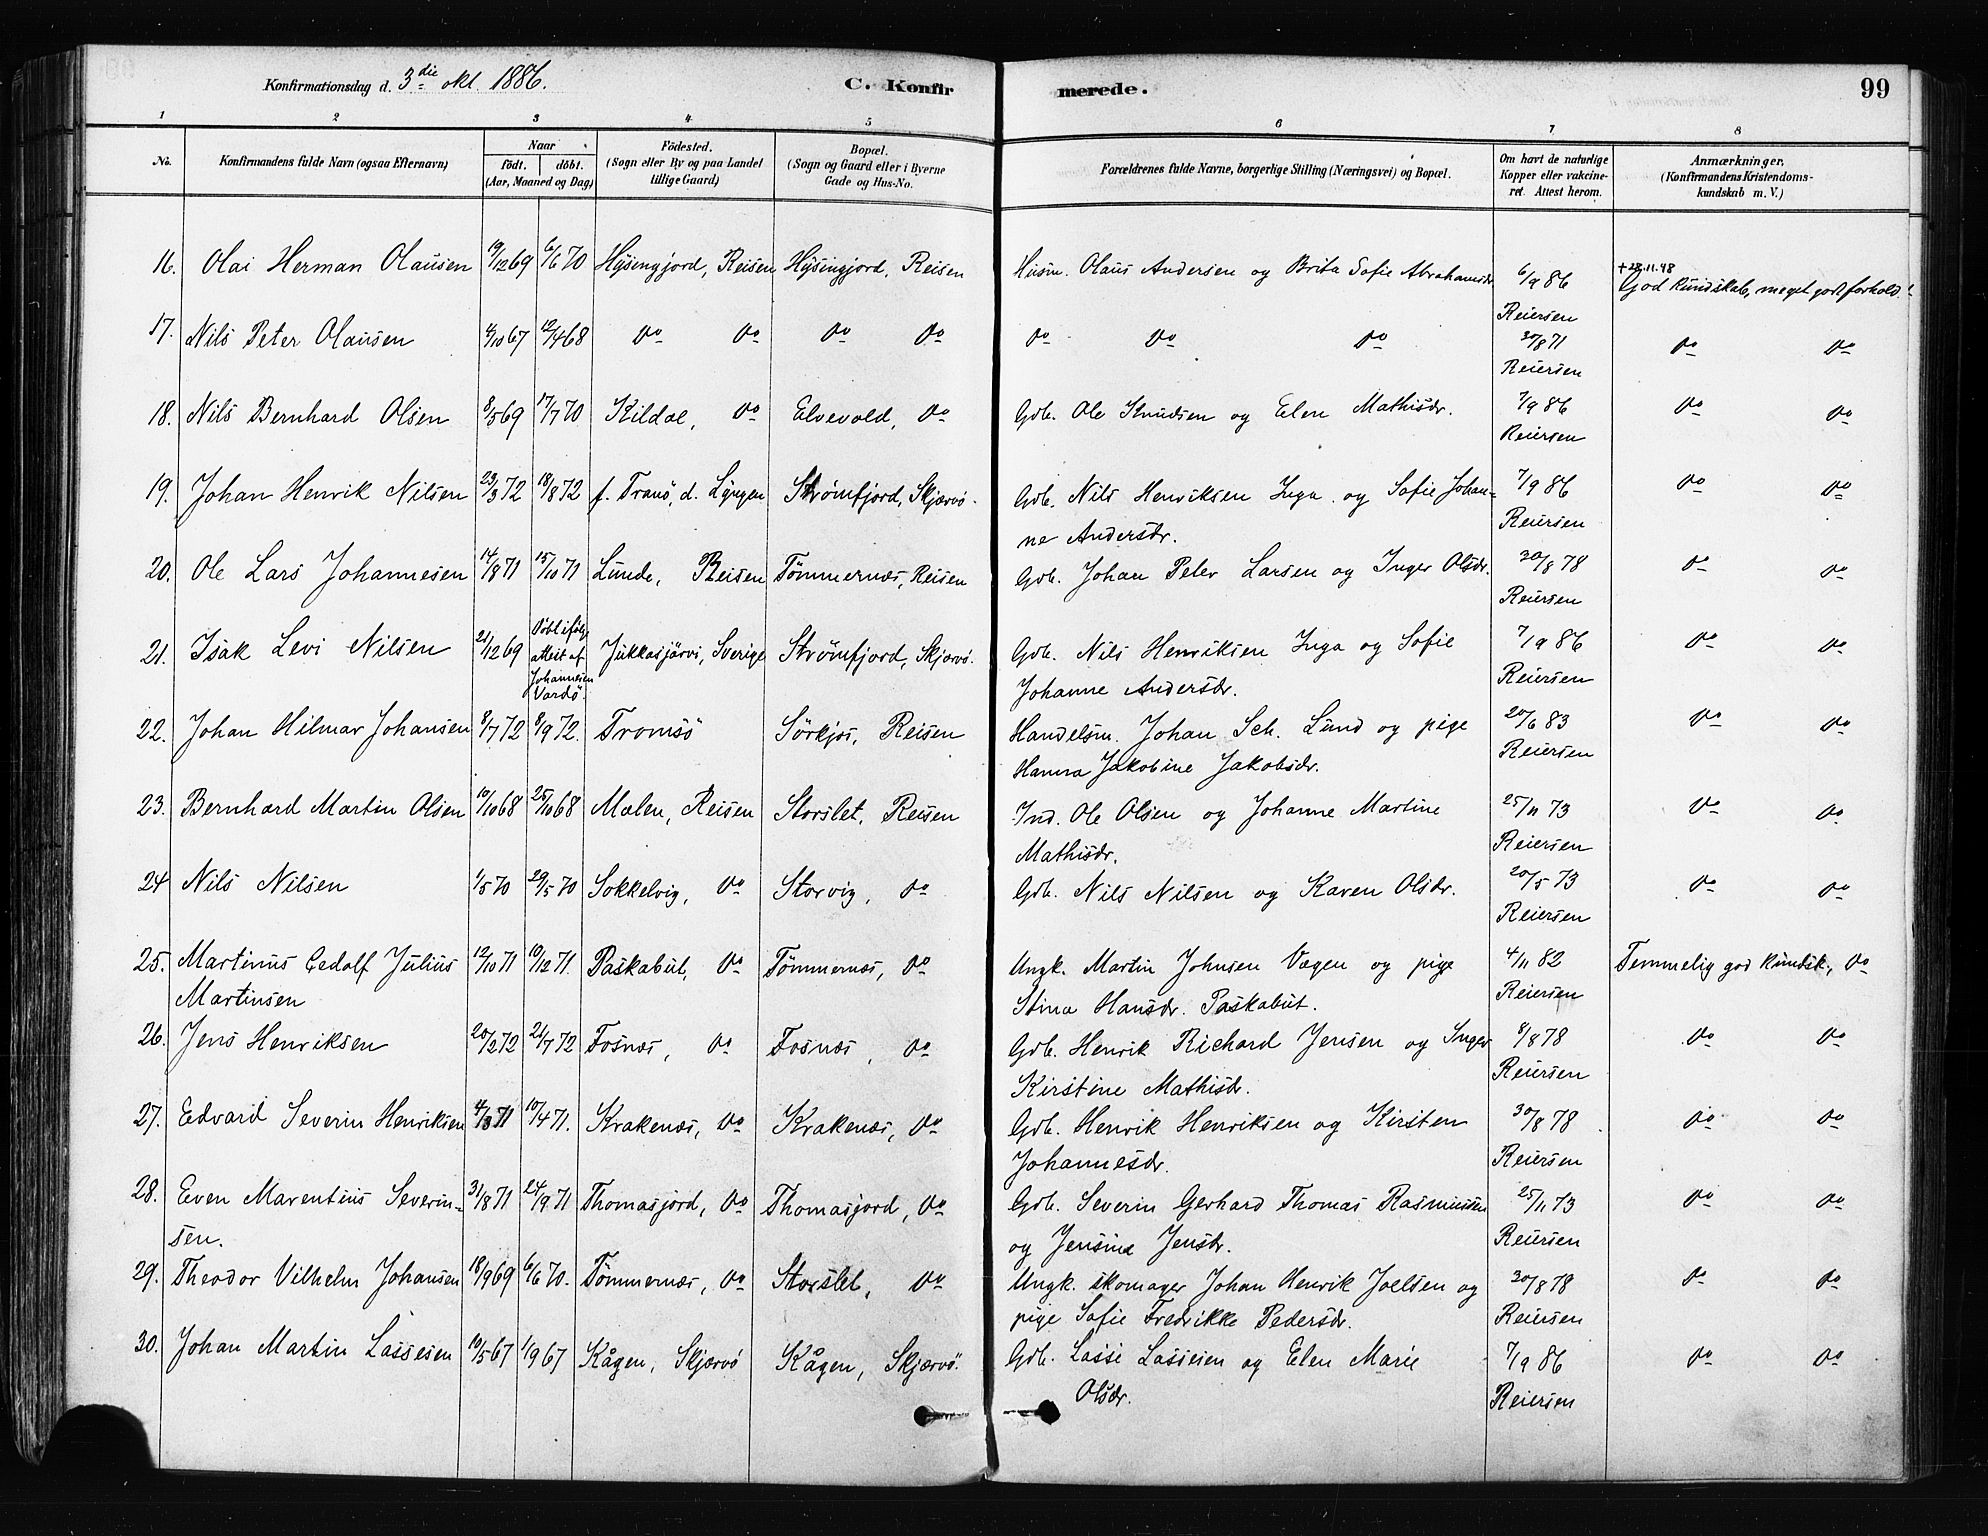 Konfirmationsdag d. 3die okt. 1886.
C. Konfirmerede.
99
1 2 3 4 5 6 7 8
No. Konfirmandens fulde Navn (ogsaa Efternavn) Naar födt. döbt. (Aar, Maaned og Dag) Födested. (Sogn eller By og paa Landet tillige Gaard) Bopæl. (Sogn og Gaard eller i Byerne Gade og Hus-No. Forældrenes fulde Navne, borgerlige Stilling (Næringsvei) og Bopæl. Om havt de naturlige Kopper eller vakcineret. Attest herom. Anmærkninger, (Konfirmandens Kristendomskundskab m. V.)
16. Olai Herman Olausen 19/12 69 6/6 70 Hysingjord, Reisen Hysingjord, Reisen Husm. Olaus Andersen og Brita Sofie Abrahamsdr. 6/9 86 Reiersen +28.11.48 God kundskab, meget godt forhold!
17. Nils Peter Olausen 4/10 67 12/4 68 do do do do do do do 30/8 71 Reiersen do do
18. Nils Bernhard Olsen 8/5 69 17/7 70 Kildal, do Elvevold, do Gdb. Ole Knudsen og Elen Mathisdr. 7/9 86 Reiersen do do
19. Johan Henrik Nilsen 23/3 72 18/8 72 f. Tranö, d. Lyngen Strömfjord, Skjærvö. Gdb. Nils Henriksen Inga og Sofie Johan=
ne Andersdr. 7/9 86 Reiersen do do
20. Ole Lars Johannesen 14/8 71 15/10 71 Lunde, Reisen Tömmernæs, Reisen Gdb. Johan Peter Larsen og Inger Olsdr. 30/8 78 Reiersen do do
21. Isak Levi Nilsen 21/12 69 Döbt ifölg attest af Johannesen Vardö. Jukkasjärvi, Sverige Strömfjord, Skjærvö. Gdb. Nils Henriksen Inga og Sofie
Johanne Andersdr. 7/9 86 Reiersen do do
22. Johan Hilmar Johansen 8/7 72 8/9 72. Tromsö Sörkjos, Reisen Handelsm. Johan Sch. Lund og pige
Hanna Jakobine Jakobsdr. 20/6 83 Reiersen do do
23. Bernhard Martin Olsen 10/10 68 25/10 68 Mælen, Reisen Storslet, Reisen Ind. Ole Olsen og Johanne Martine
Mathisdr. 25/11 73 Reiersen do do
24 Nils Nilsen 1/5 70 29/5 70 Sokkelvig, do Storvig, do Gdb. Nils Nilsen og Karen Olsdr. 20/5 73 Reiersen do do
25. Martinus Gedolf Julius
Martinsen 12/10 71 10/12 71. Paskabut, do Tömmernæs, do Ungk. Martin Johnsen Vægen og pige
Stina Hansdr. Paskabut. 4/11 82 Reiersen Temmelig god kundsk., do
26. Jens Henriksen 20/2 72 21/7 72 Fosnæs, do Fosnæs, do Gdb. Henrik Richard Jensen og Inger
Kirstine Mathisdr. 8/8 78 Reiersen do do
27. Edvard Severin Henriksen 4/3 71 10/4 71. Krakenæs, do Krakenæs, do Gdb. Henrik Henriksen og Kirsten
Johannesdr. 30/8 78 Reiersen do do
28. Even Marentius Severin=
sen. 31/8 71 24/9 71 Thomasjord, do Thomasjord, do Gdb. Severin Gerhard Thomas Rasmussen
og Jensine Jensdr. 25/11 73 Reiersen do do
29. Theodor Vilhelm Johansen 18/9 69 6/6 70. Tömmernæs, do Storslet, do Ungk. skomager Johan Henrik Joelsen og
pige Sofie Fredrikke Pedersdr. 30/8 78 Reiersen do do
30. Johan Martin Lassesen 10/5 67 1/9 67 Kågen, Skjærvö Kågen, Skjærvö. Gdb. Lasse Lassesen og Elen Marie
Olsdr. 7/9 86 Reiersen do do